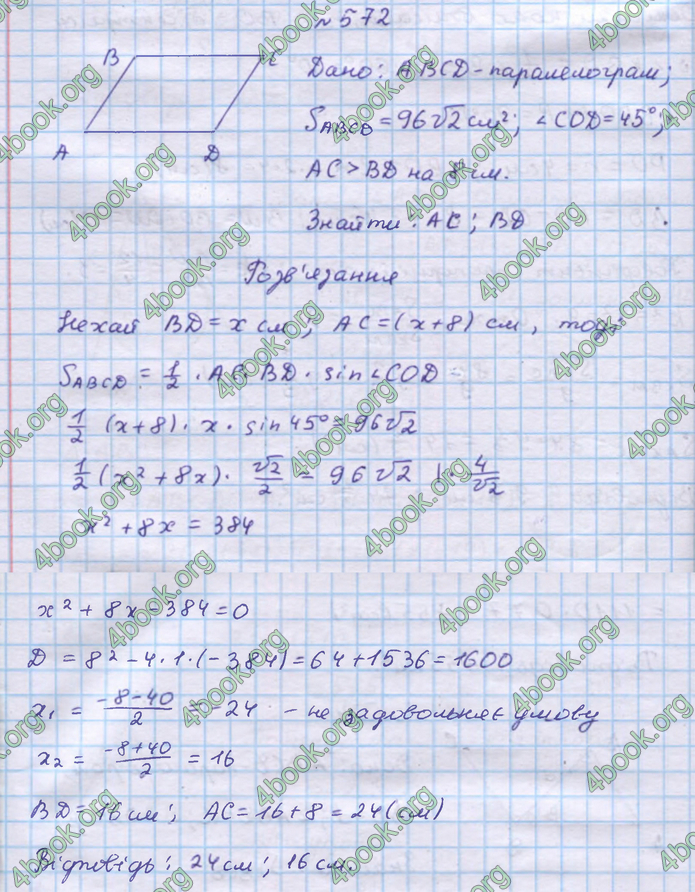 №572
B C
Дано: ABCD-паралелограм;
S_ABCD = 96√2 см²; ∠COD=45°;
A D
AC > BD на 8 см.
Знайти: AC; BD
Розв'язання
Нехай BD = x см, AC = (x+8) см, тоді:
S_ABCD = 1/2 · AC · BD · sin∠COD =
1/2 (x+8) · x · sin 45° = 96√2
1/2 (x² + 8x) · √2/2 = 96√2 | · 4/√2
x² + 8x = 384
x² + 8x - 384 = 0
D = 8² - 4 · 1 · (-384) = 64 + 1536 = 1600
x₁ = (-8-40)/2 = -24 - не задовольняє умову
x₂ = (-8+40)/2 = 16
BD = 16 см; AC = 16 + 8 = 24 (см)
Відповідь: 24 см; 16 см.
4book.org